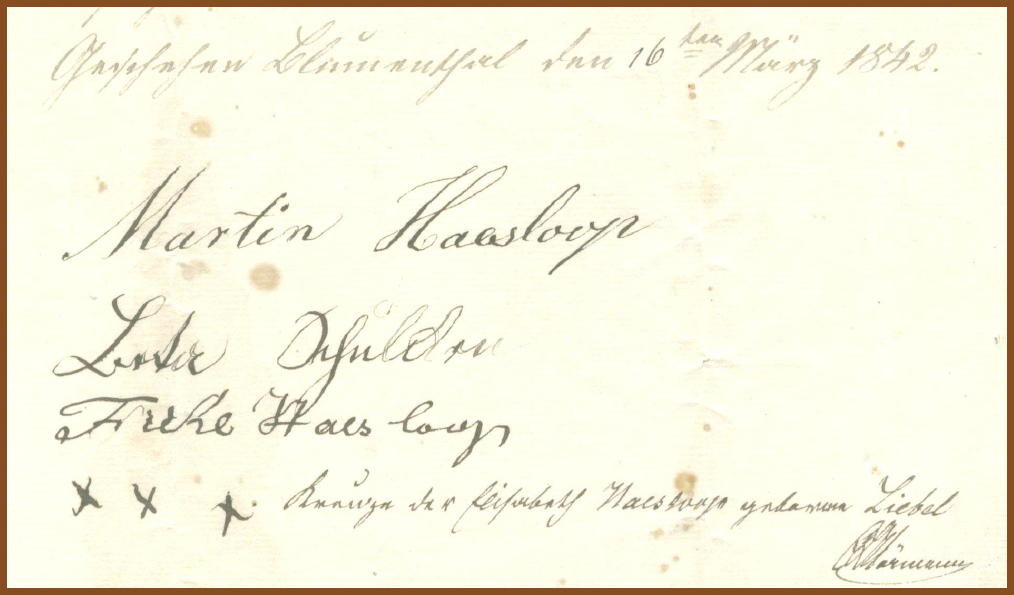 Geschehen Blumenthal den 16ten März 1842.
Martin Haesloop
Schulken
Frike Haesloop
x x x Kreuze der Elisabeth Haesloop geborne Liebel